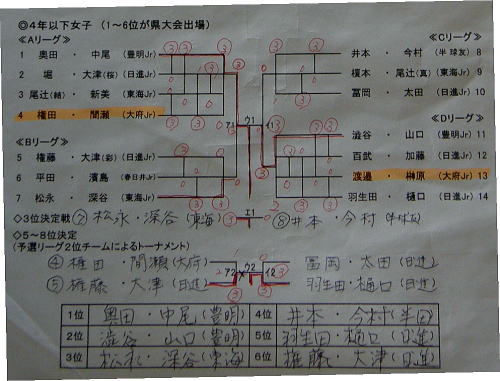 ◎4年以下女子 (1～6位が県大会出場)
≪Aリーグ≫
1 奥田 ・ 中尾 (豊明Jr)
2 堀 ・ 大津(桜) (日進Jr)
3 尾辻(輔) ・ 新美 (東海Jr)
4 権田 ・ 間瀬 (大府Jr)
≪Bリーグ≫
5 権藤 ・ 大津(彩) (日進Jr)
6 平田 ・ 濱島 (春日井Jr)
7 松永 ・ 深谷 (東海Jr)
≪Cリーグ≫
井本 ・ 今村 (半球友) 8
榎本 ・ 尾辻(真) (東海Jr) 9
冨岡 ・ 太田 (日進Jr) 10
≪Dリーグ≫
澁谷 ・ 山口 (豊明Jr) 11
百武 ・ 加藤 (日進Jr) 12
渡邉 ・ 榊原 (大府Jr) 13
羽生田 ・ 樋口 (日進Jr) 14
ア1 ウ1 イ1
◇3位決定戦 ⑦ 松永・深谷(東海) ③ エ1 ⑧ 井本・今村(半球友)
◇5～8位決定
(予選リーグ2位チームによるトーナメント)
④ 権田・間瀬(大府) ア2 ウ2 イ2 冨岡・太田(日進)
⑤ 権藤・大津(日進) 羽生田・樋口(日進)
1位 奥田・中尾(豊明) 4位 井本・今村(半田)
2位 澁谷・山口(豊明) 5位 羽生田・樋口(日進)
3位 松永・深谷(東海) 6位 権藤・大津(日進)